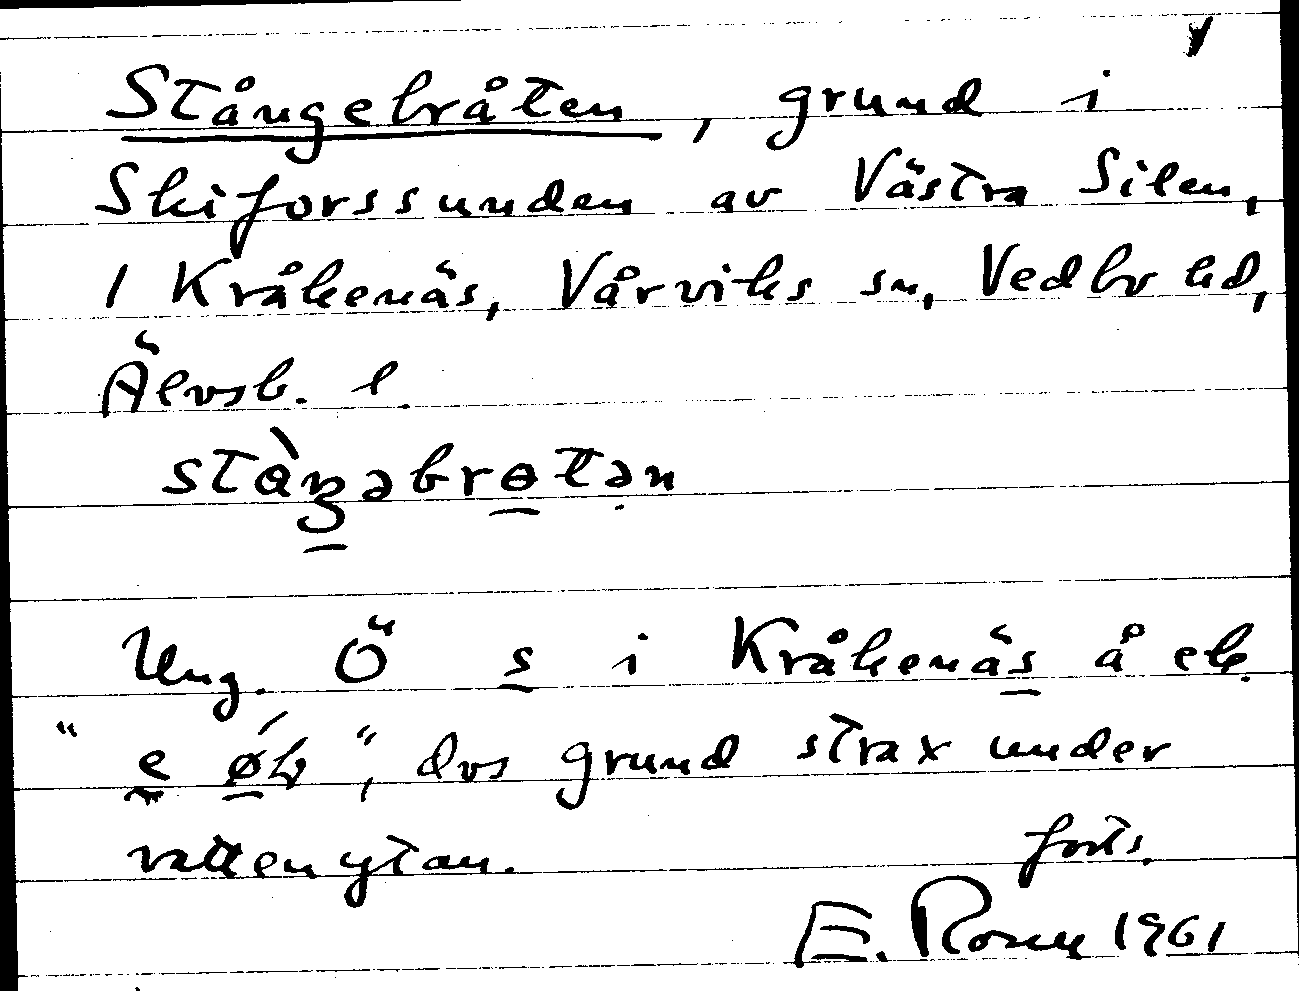 Stångebråten, grund i
Skiforssunden av Västra Silen,
/ Kråkenäs, Vårviks sn, Vedbo hd,
Älvsb. l.
stàŋəbrɵtən
Ung. Ö s i Kråkenäs å ek.
"e øb", dvs grund strax under
vattenytan. forts.
E. Rosen 1961